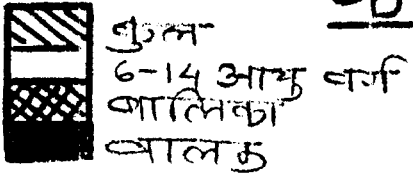 कुल
6-14 आयु वर्ग
बालिका
बालक